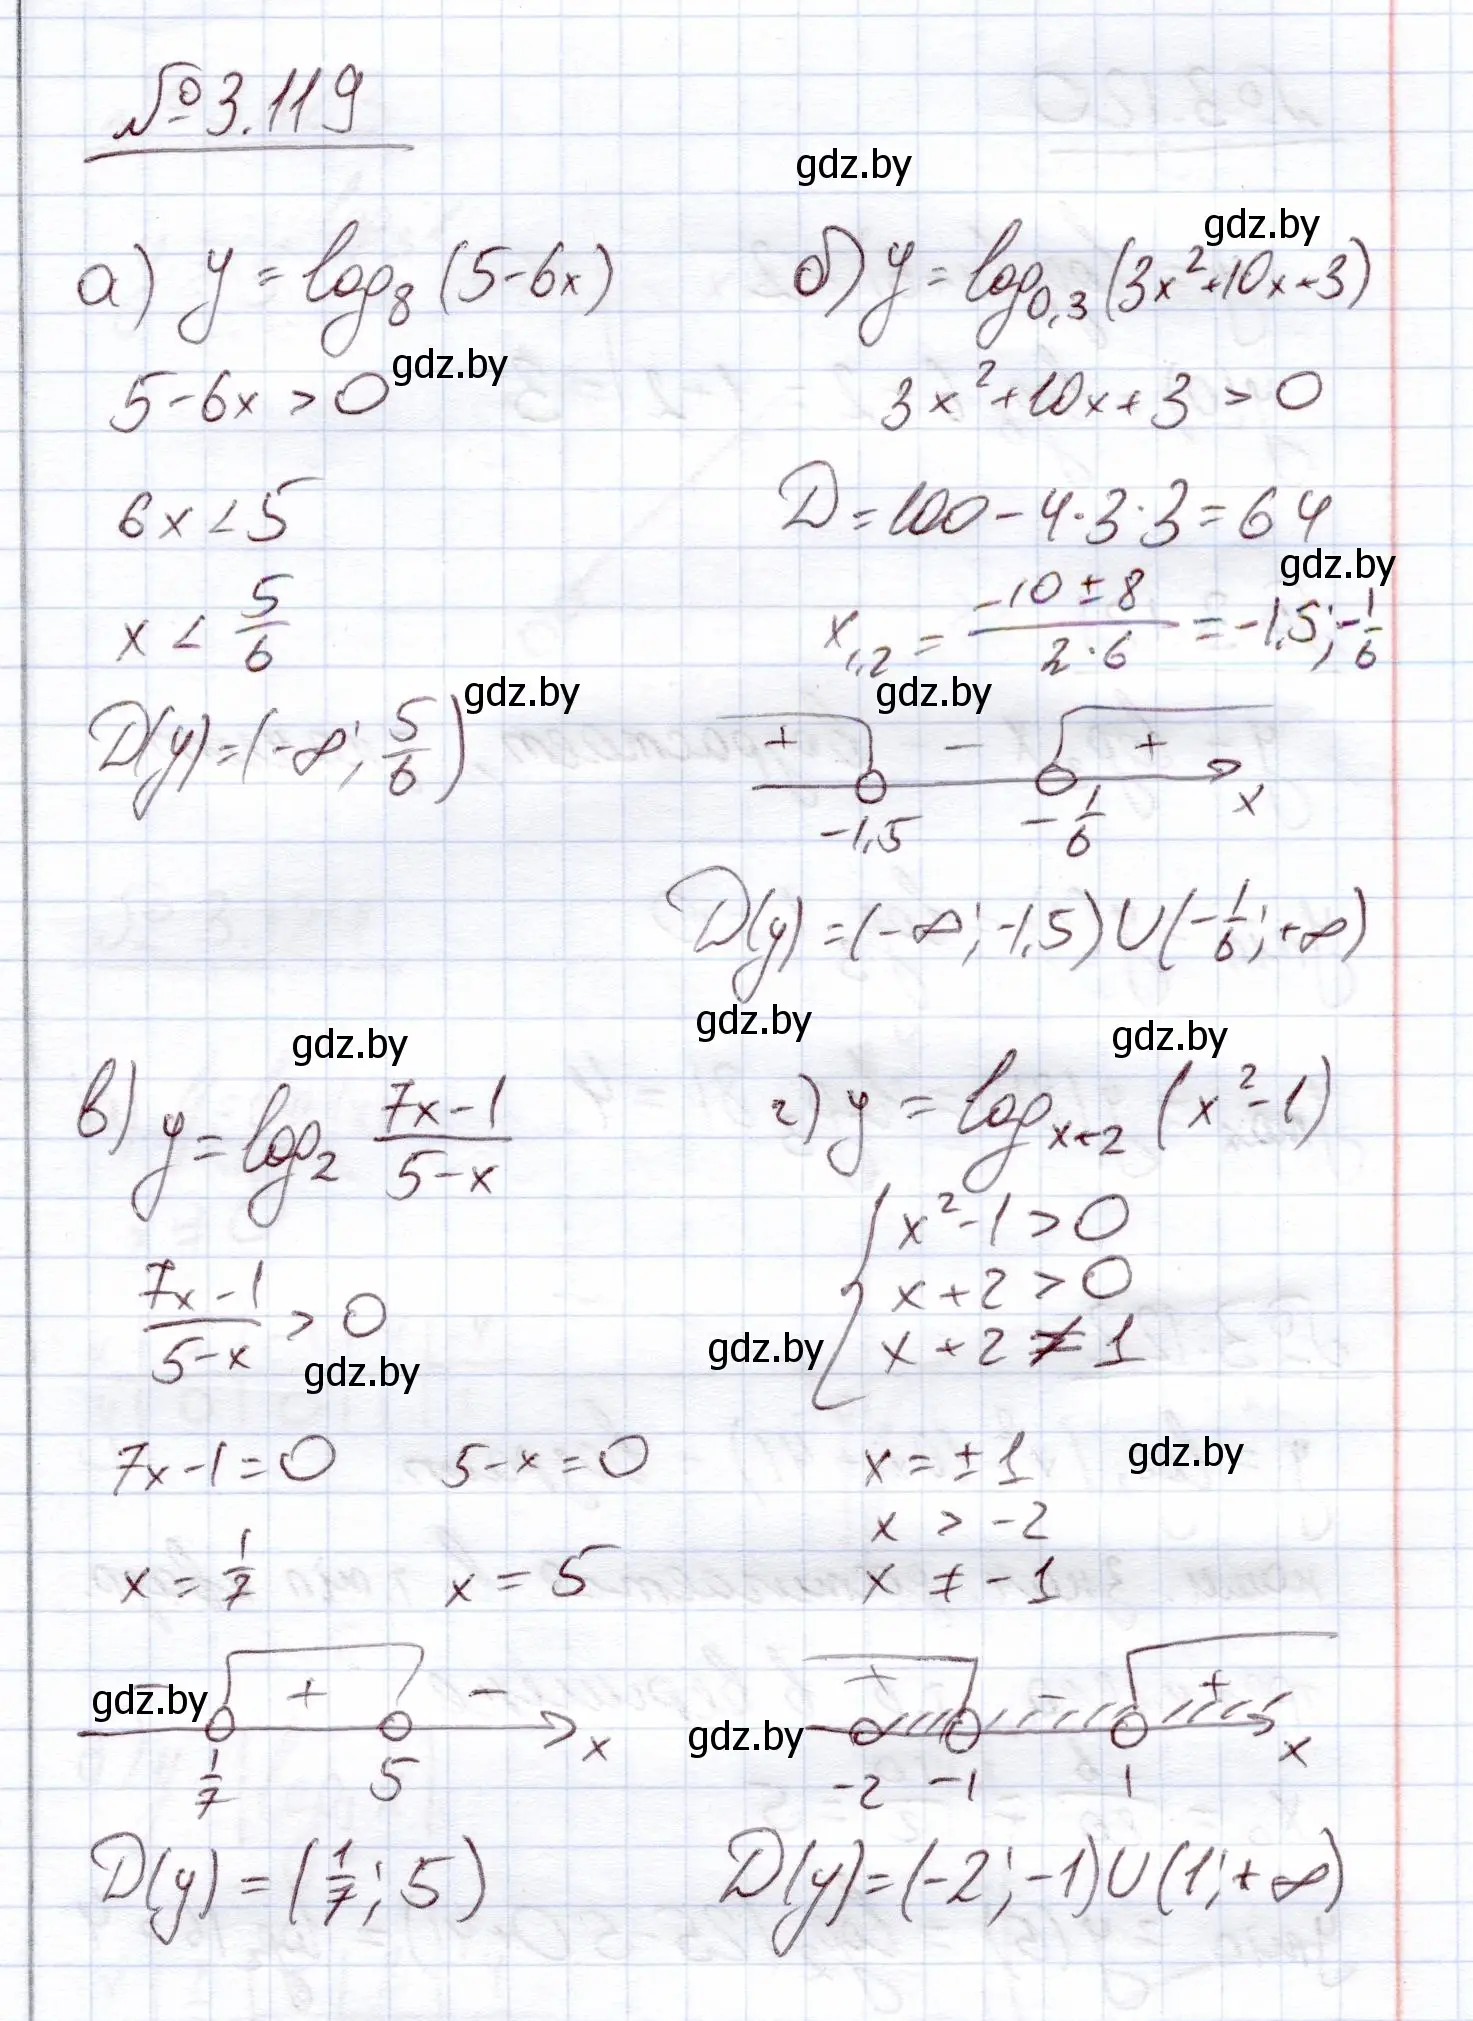 №3.119
gdz.by
gdz.by
а) y = log₈ (5-6x)
5-6x > 0
gdz.by
6x < 5
x < 5/6
D(y)=(-∞; 5/6)
gdz.by
б) y = log₀,₃ (3x²+10x+3)
3x²+10x+3 > 0
D = 100 - 4·3·3 = 64
gdz.by
x₁,₂ = (-10 ± 8)/(2·6) = -1,5; -1/6
gdz.by
+ - +
-1,5 -1/6 x
D(y) = (-∞; -1,5) U (-1/6; +∞)
gdz.by
gdz.by
gdz.by
в) y = log₂ (7x-1)/(5-x)
(7x-1)/(5-x) > 0
gdz.by
7x-1=0 5-x=0
x = 1/7 x = 5
gdz.by
- + -
1/7 5 x
D(y) = (1/7; 5)
г) y = log ₓ₊₂ (x²-1)
{ x²-1 > 0
x+2 > 0
x+2 ≠ 1
gdz.by
x = ±1
gdz.by
x > -2
x ≠ -1
gdz.by
+ - +
-2 -1 1 x
D(y) = (-2; -1) U (1; +∞)